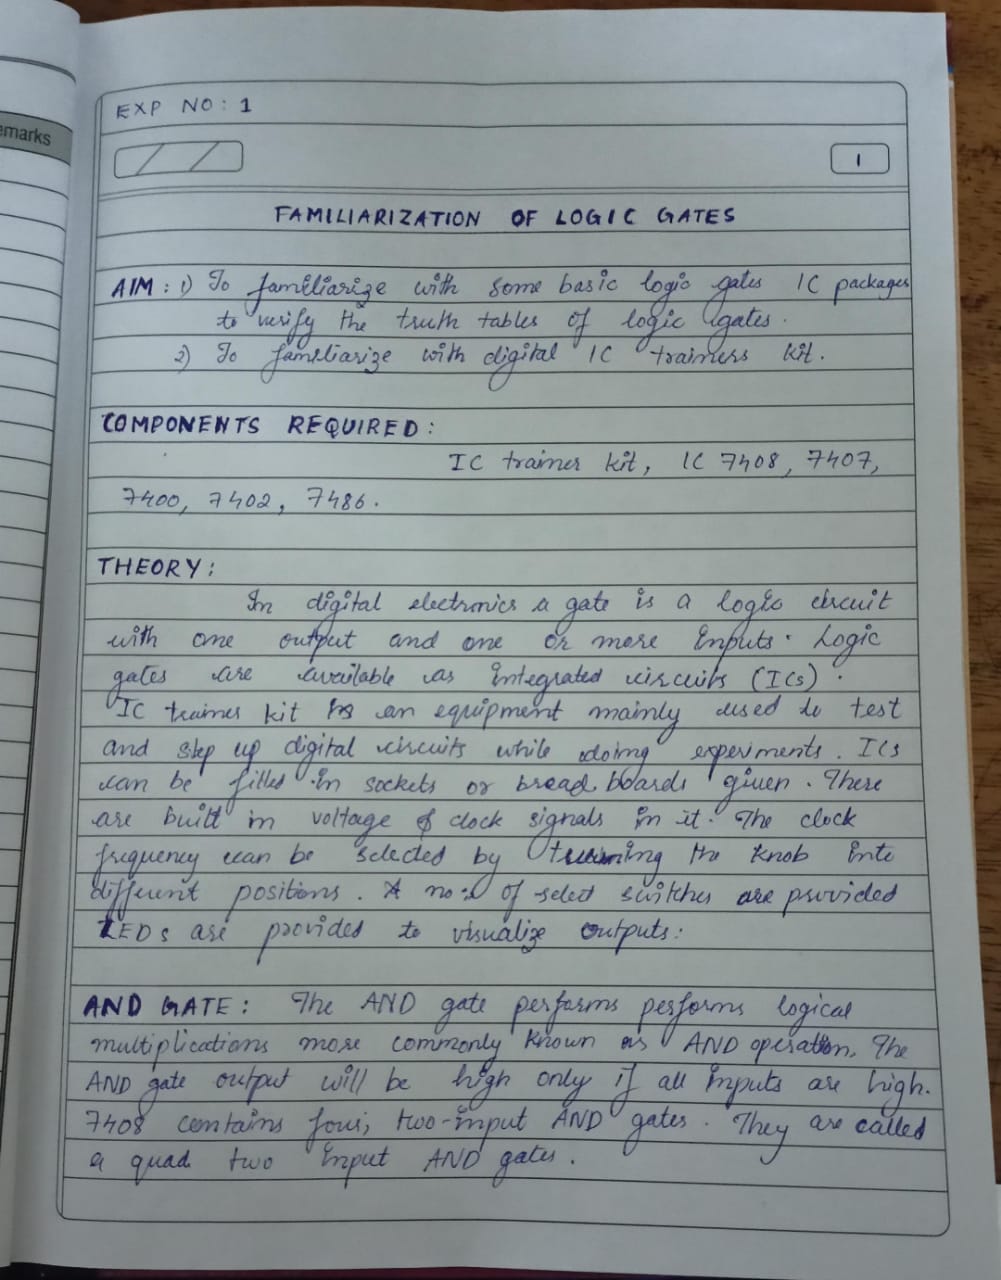 emarks
EXP NO: 1
1
FAMILIARIZATION OF LOGIC GATES
AIM: 1) To familiarize with some basic logic gates IC packages
to verify the truth tables of logic gates.
2) To familiarize with digital IC trainers kit.
COMPONENTS REQUIRED:
IC trainer kit, IC 7408, 7407,
7400, 7402, 7486.
THEORY:
In digital electronics a gate is a logic circuit
with one output and one or more inputs. Logic
gates are available as integrated circuits (ICs).
IC trainer kit is an equipment mainly used to test
and step up digital circuits while doing experiments. ICs
can be filled in sockets or bread boards given. There
are built in voltage & clock signals in it. The clock
frequency can be selected by turning the knob into
different positions. A no: of select switches are provided
LEDs are provided to visualize outputs:
AND GATE: The AND gate performs performs logical
multiplications more commonly known as AND operation. The
AND gate output will be high only if all inputs are high.
7408 contains four, two-input AND gates. They are called
a quad two input AND gates.